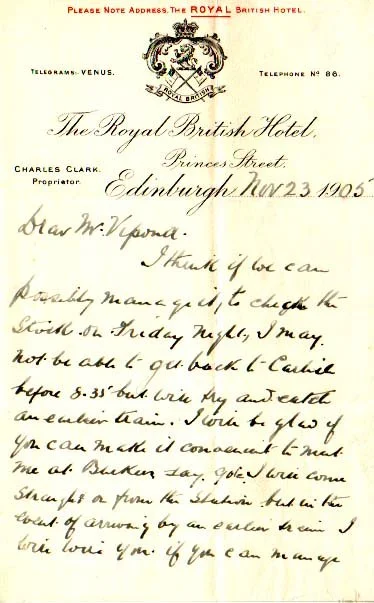 PLEASE NOTE ADDRESS. THE ROYAL BRITISH HOTEL.
TELEGRAMS: VENUS.
TELEPHONE No 86.
ROYAL BRITISH
The Royal British Hotel.
Princes Street.
CHARLES CLARK.
Proprietor.
Edinburgh Nov 23 1905
Dear Mr. Vipond.
I think if we can
possibly manage it, to check the
Stock on Friday Night, I may
not be able to get back to Carlisle
before 8.35 but will try and catch
an earlier train. I will be glad if
you can make it convenient to meet
me at say I will come
straight on from the Station but in the
event of arriving by an earlier train I
will wire you. if you can manage